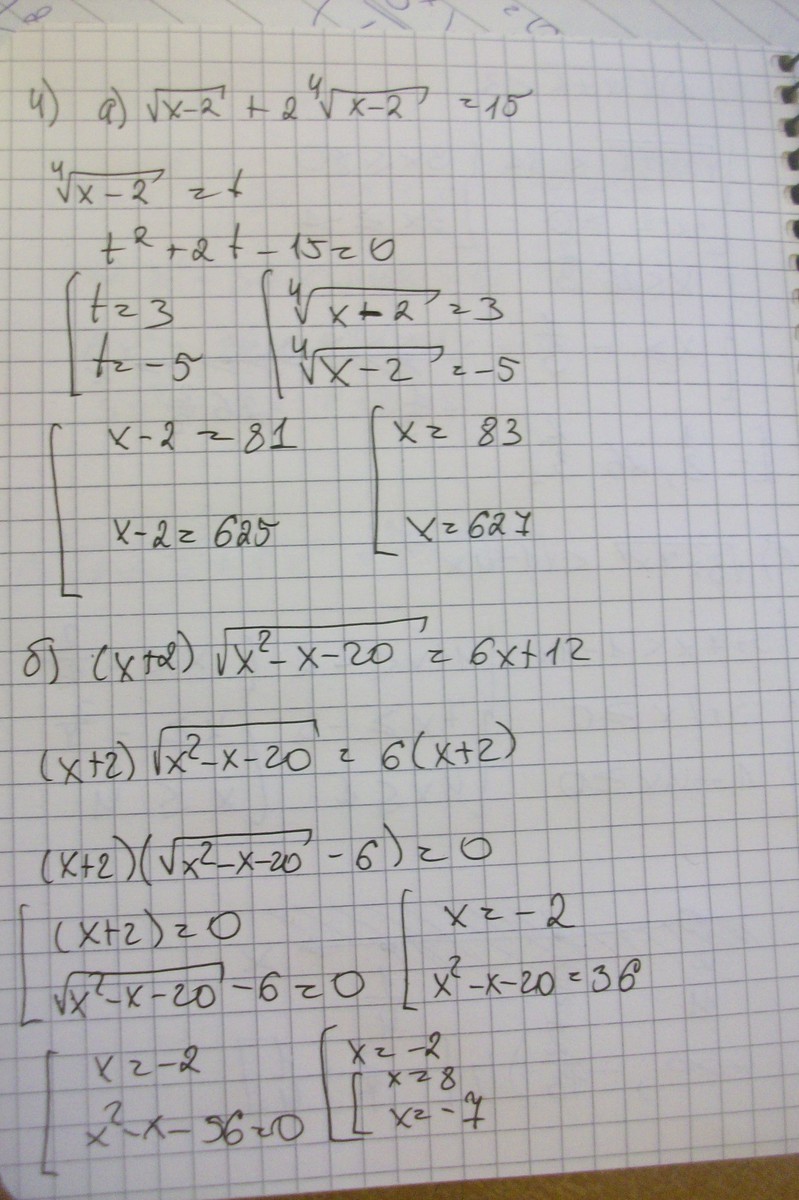 4) а) √(x-2) + 2 ⁴√(x-2) = 15
⁴√(x-2) = t
t² + 2t - 15 = 0
[ t = 3 [ ⁴√(x-2) = 3
[ t = -5 [ ⁴√(x-2) = -5
[ x-2 = 81 [ x = 83
[ x-2 = 625 [ x = 627
б) (x+2) √(x²-x-20) = 6x+12
(x+2) √(x²-x-20) = 6(x+2)
(x+2)(√(x²-x-20) - 6) = 0
[ (x+2) = 0 [ x = -2
[ √(x²-x-20) - 6 = 0 [ x²-x-20 = 36
[ x = -2 [ x = -2
[ x²-x-56=0 [ [ x = 8
[ x = -7